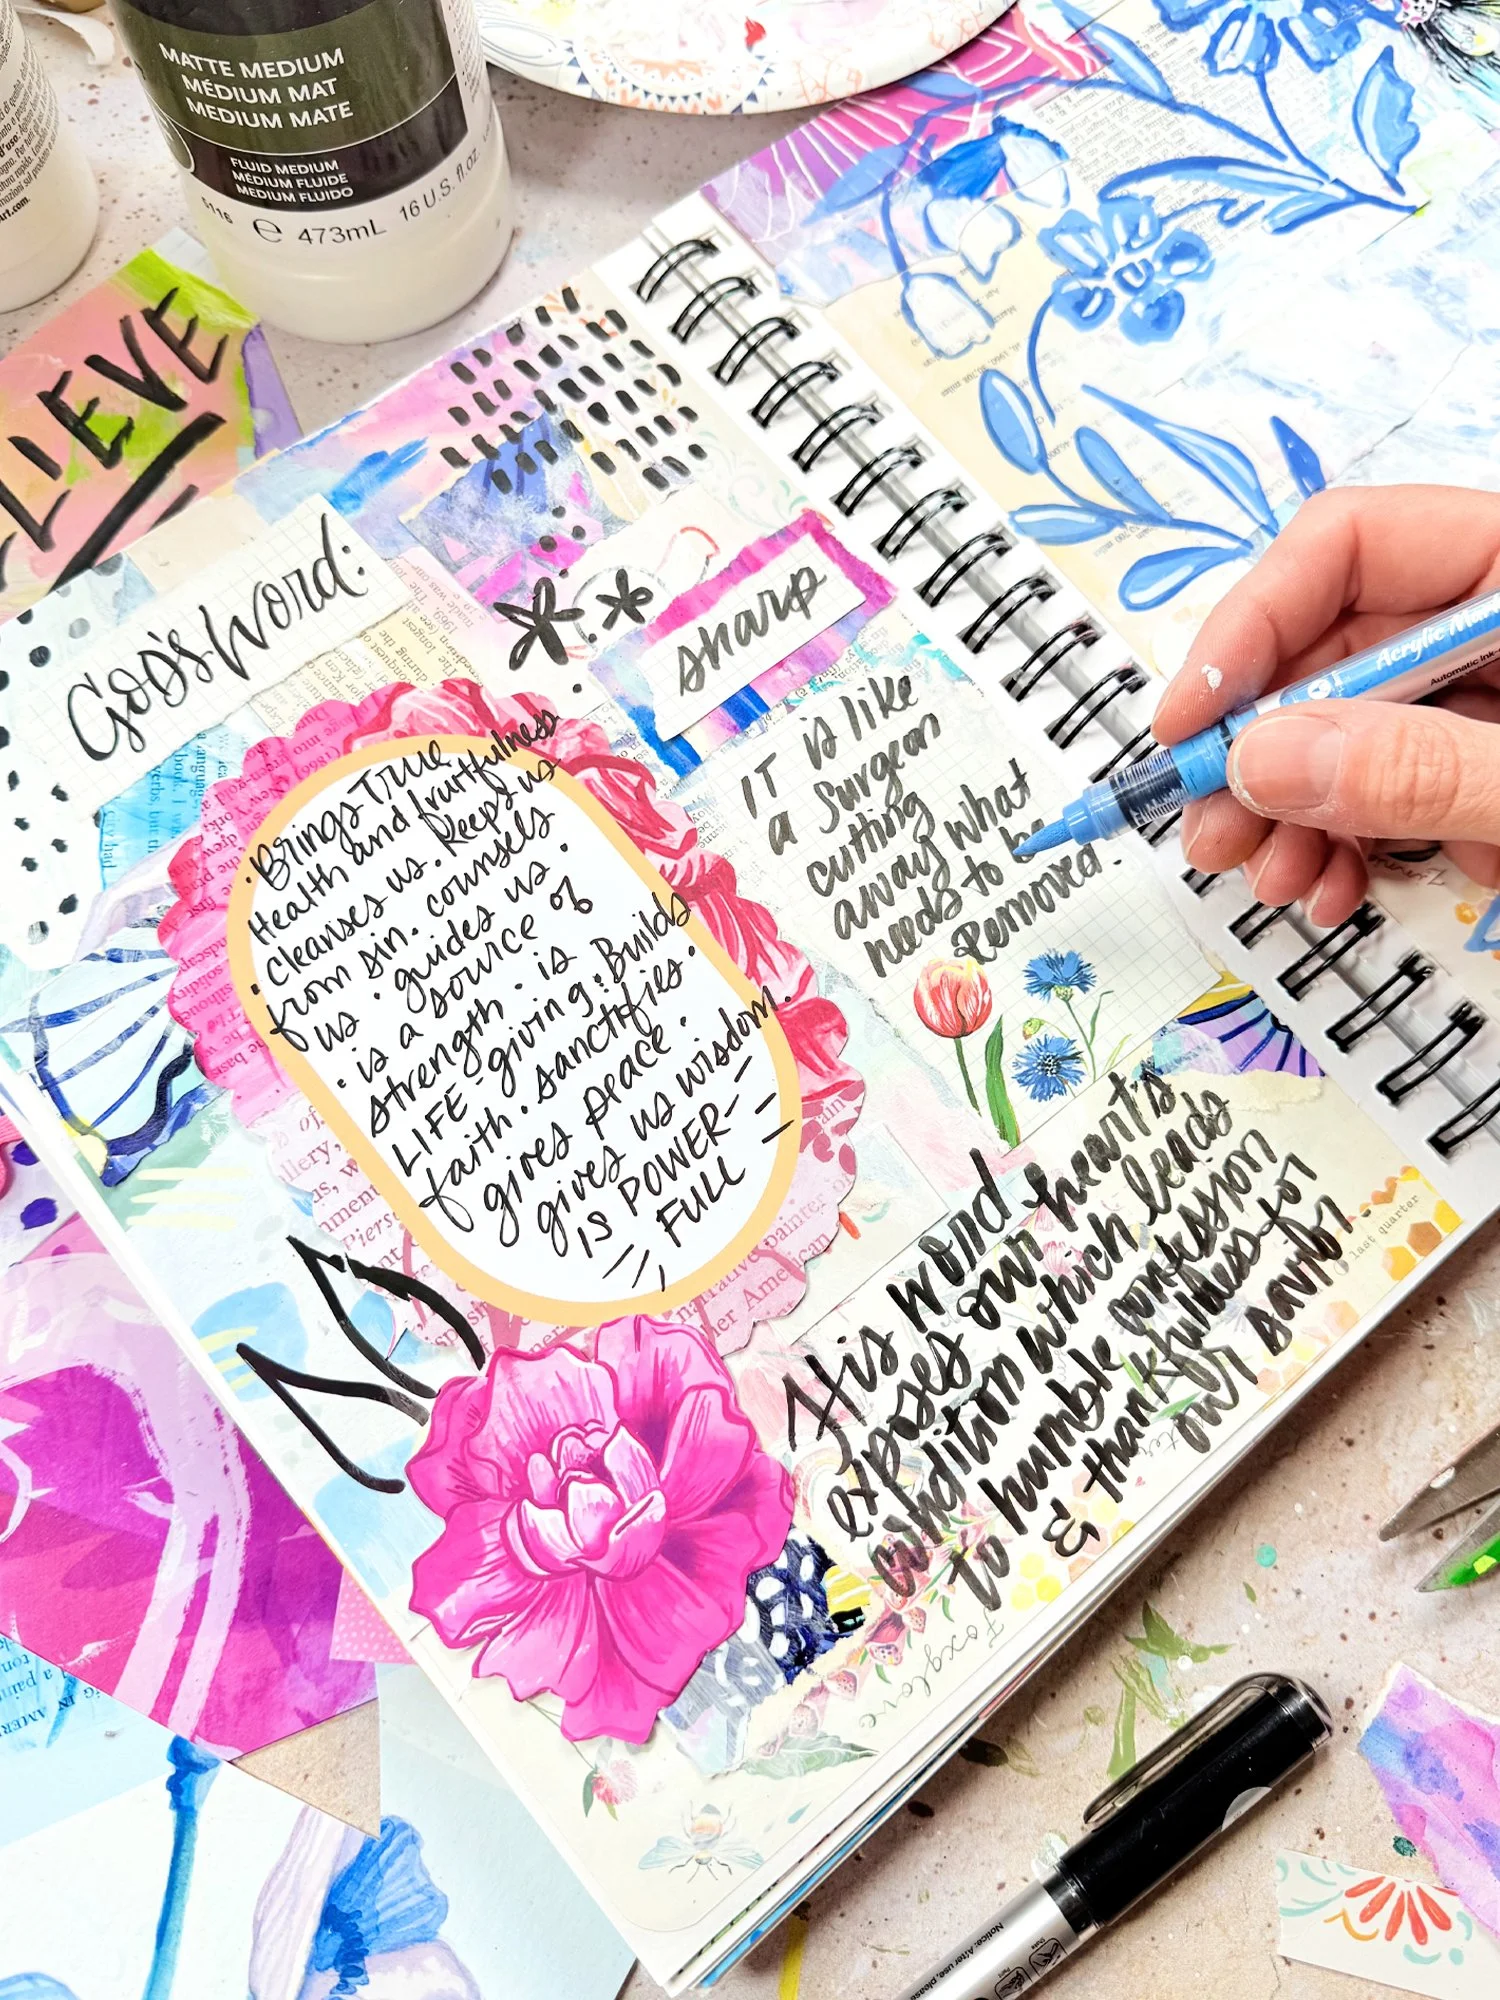 MATTE MEDIUM
MÉDIUM MAT
MEDIUM MATE
FLUID MEDIUM
MÉDIUM FLUIDE
MEDIUM FLUIDO
5116 e 473mL 16 U.S. fl.oz.
LIEVE
God's Word:
sharp
• Brings True
Health and fruitfulness
• Cleanses us. Keeps us
from sin. counsels
us. guides us.
• is a source of
strength. is
LIFE-giving. Builds
faith. sanctifies.
gives peace.
gives us wisdom.
is POWER-
FULL
IT is like
a surgeon
cutting
away what
needs to be
Removed.
His word
exposes our heart's
condition which leads
to humble confession
& thankfullness for
our savior.
last quarter
Foxglove
Acrylic Mar
Automatic Ink
Notice. After use, please